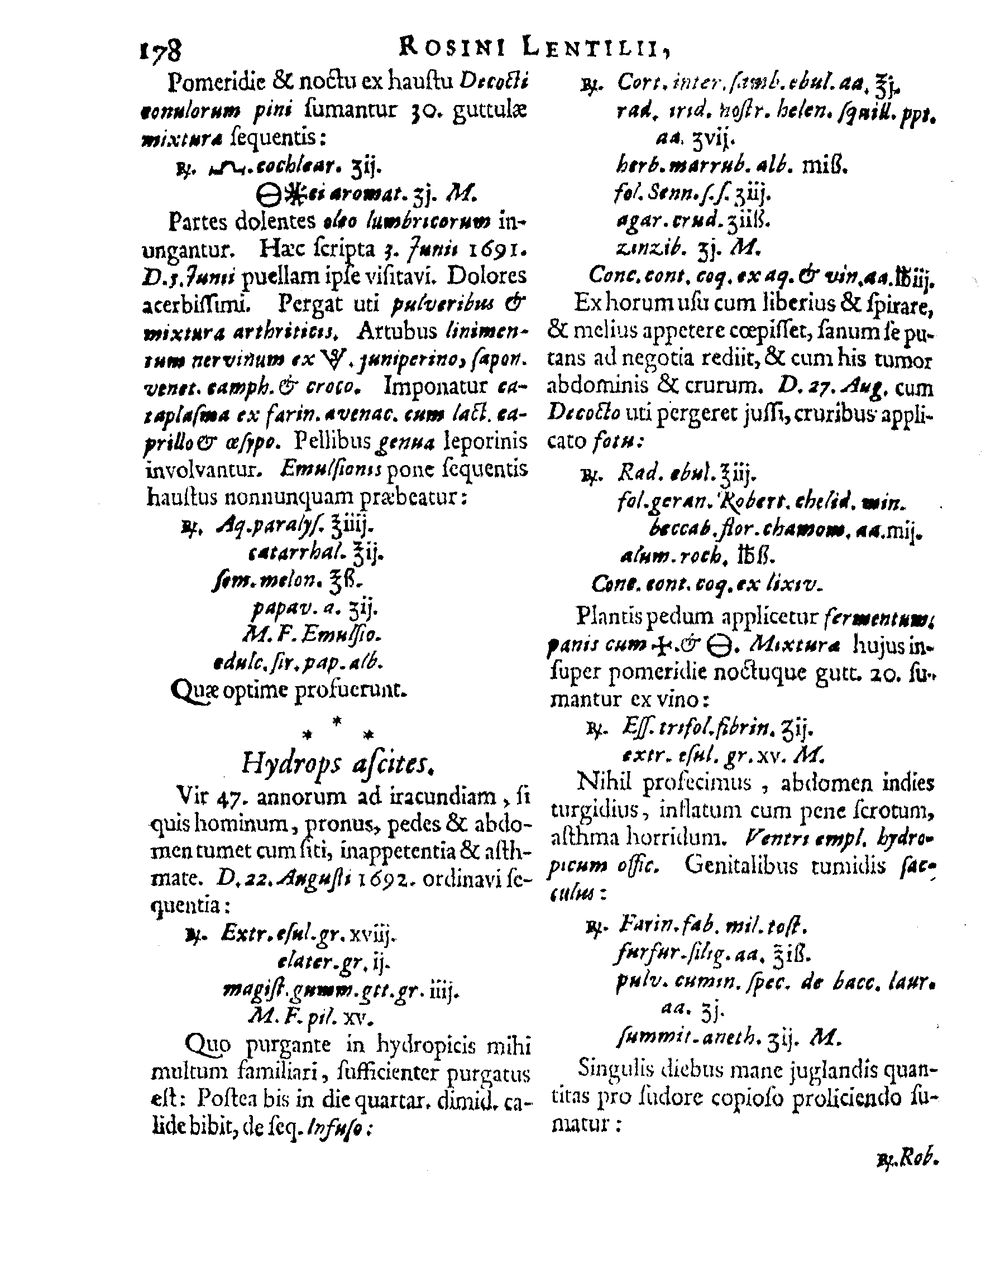 178 ROSINI LENTILII,
Pomeridie & noctu ex hauſtu Decocti
conulorum pini ſumantur 30. guttulæ
mixtura ſequentis:
℞. cochlear. ʒij.
🜔✳ci aromat. ʒj. M.
Partes dolentes oleo lumbricorum in-
ungantur. Hæc ſcripta 3. Junii 1691.
D. 5. Junii puellam ipſe viſitavi. Dolores
acerbiſſimi. Pergat uti pulveribus &
mixtura arthriticis. Artubus linimen-
tum nervinum ex juniperino, ſapon.
venet. camph. & croco. Imponatur ca-
taplaſma ex farin. avenac. cum lact. ca-
prillo & œſypo. Pellibus genua leporinis
involvantur. Emulſionis pone ſequentis
hauſtus nonnunquam præbeatur:
℞. Aq. paralyſ. ℥iiij.
catarrhal. ℥ij.
ſem. melon. ℥ß.
papav. a. ʒij.
M. F. Emulſio.
edulc. ſir. pap. alb.
Quæ optime profuerunt.
*
* *
Hydrops aſcites.
Vir 47. annorum ad iracundiam, ſi
quis hominum, pronus, pedes & abdo-
men tumet cum ſiti, inappetentia & aſth-
mate. D. 22. Auguſti 1692. ordinavi ſe-
quentia:
℞. Extr. eſul. gr. xviij.
elater. gr. ij.
magiſt. gumm. gtt. gr. iiij.
M. F. pil. xv.
Quo purgante in hydropicis mihi
multum familiari, ſufficienter purgatus
eſt: Poſtea bis in die quartar. dimid. ca-
lide bibit, de ſeq. Infuſo:
℞. Cort. inter. ſamb. ebul. aa. ℥j.
rad. irid. noſtr. helen. ſquill. ppt.
aa. ʒvij.
herb. marrub. alb. miß.
fol. Senn. ſ. ſ. ʒiij.
agar. crud. ʒiiß.
zinzib. ʒj. M.
Conc. cont. coq. ex aq. & vin. aa. ℔iij.
Ex horum uſu cum liberius & ſpirare,
& melius appetere cœpiſſet, ſanum ſe pu-
tans ad negotia rediit, & cum his tumor
abdominis & crurum. D. 27. Aug. cum
Decocto uti pergeret juſſi, cruribus appli-
cato fotu:
℞. Rad. ebul. ℥iij.
fol. geran. Robert. chelid. min.
beccab. flor. chamom. aa. mij.
alum. roch. ℔ß.
Conc. cont. coq. ex lixiv.
Plantis pedum applicetur fermentum
panis cum 🜊. & 🜔. Mixtura hujus in-
ſuper pomeridie noctuque gutt. 20. ſu-
mantur ex vino:
℞. Eſſ. trifol. fibrin. ℥ij.
extr. eſul. gr. xv. M.
Nihil profecimus, abdomen indies
turgidius, inflatum cum pene ſcrotum,
aſthma horridum. Ventri empl. hydro-
picum offic. Genitalibus tumidis ſac-
culus:
℞. Farin. fab. mil. toſt.
furfur. ſilig. aa. ℥iß.
pulv. cumin. ſpec. de bacc. laur.
aa. ʒj.
ſummit. aneth. ʒij. M.
Singulis diebus mane juglandis quan-
titas pro ſudore copioſo proliciendo ſu-
matur:
℞. Rob.